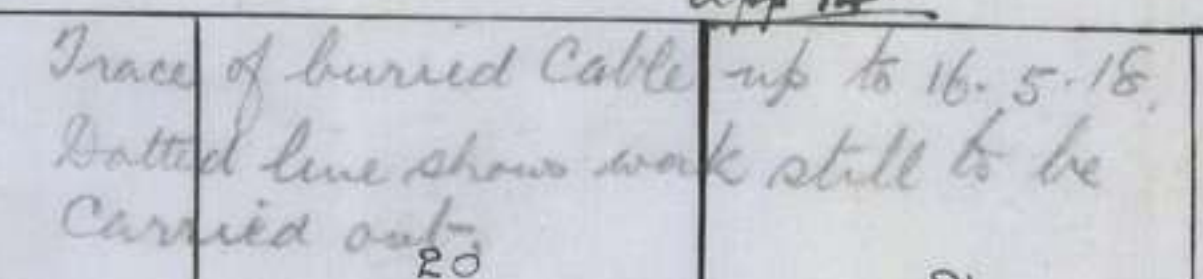 App 12
Trace of buried Cable up to 16.5.18.
Dotted line shows work still to be
Carried out.
20